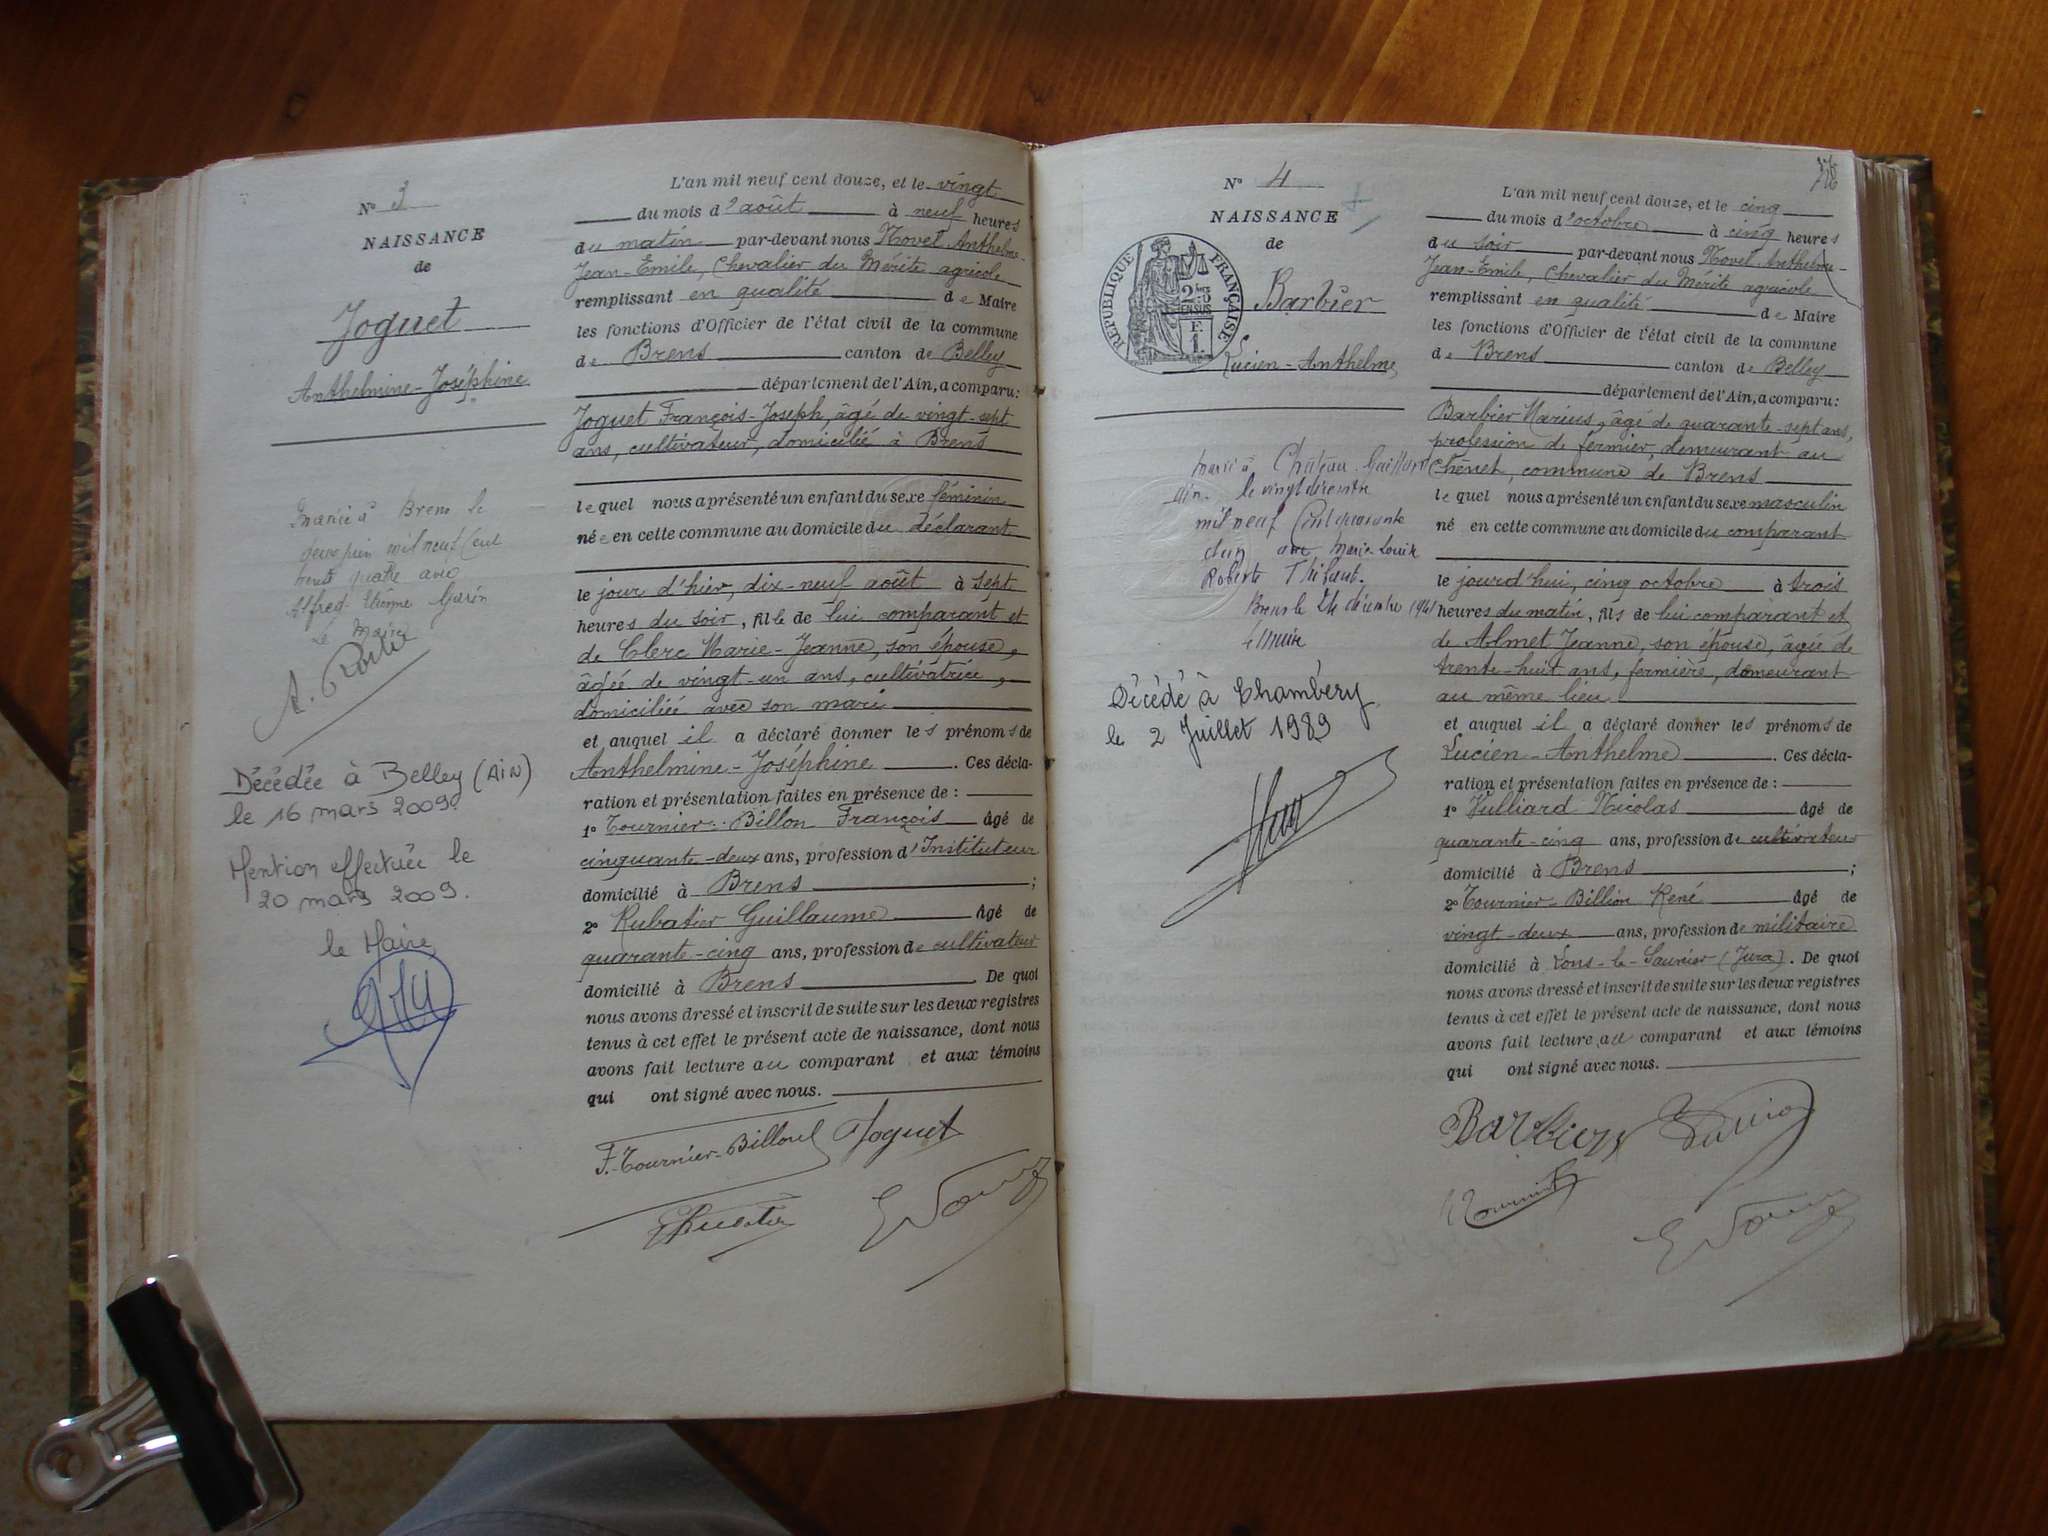 N° 3
NAISSANCE
de
Joguet
Anthelmine-Joséphine
Mariée à Brens le
juin mil neuf cent
trente quatre avec
Alfred Etienne
Le Maire
Décédée à Belley (AIN)
le 16 mars 2009.
Mention effectuée le
20 mars 2009.
le Maire
L'an mil neuf cent douze, et le vingt
du mois d'août à neuf heures
du matin par-devant nous Novel Anthelme-
Jean-Emile, Chevalier du Mérite agricole
remplissant en qualité de Maire
les fonctions d'Officier de l'état civil de la commune
de Brens canton de Belley
département de l'Ain, a comparu:
Joguet François-Joseph, âgé de vingt-sept
ans, cultivateur, domicilié à Brens
lequel nous a présenté un enfant du sexe féminin
née en cette commune au domicile du déclarant
le jour d'hier, dix-neuf août à sept
heures du soir, fille de lui comparant et
de Clerc Marie-Jeanne, son épouse,
âgée de vingt-un ans, cultivatrice,
domiciliée avec son mari
et auquel il a déclaré donner les prénoms de
Anthelmine-Joséphine. Ces décla-
ration et présentation faites en présence de :
1° Tournier-Billon François Âgé de
cinquante-deux ans, profession d'Instituteur
domicilié à Brens ;
2° Rubatier Guillaume Âgé de
quarante-cinq ans, profession de cultivateur
domicilié à Brens. De quoi
nous avons dressé et inscrit de suite sur les deux registres
tenus à cet effet le présent acte de naissance, dont nous
avons fait lecture au comparant et aux témoins
qui ont signé avec nous.
F. Tournier-Billon Joguet
N° 4
NAISSANCE
de
RÉPUBLIQUE FRANÇAISE
Barbier
Lucien-Anthelme
Marié à Château-Gaillard
Ain le vingt décembre
mil neuf cent quarante
et un avec Marie-Louise
Roberte Thibaut.
Brens le 24 décembre 1941
le Maire
Décédé à Chambéry
le 2 Juillet 1989
L'an mil neuf cent douze, et le cinq
du mois d'octobre à cinq heures
du soir par-devant nous Novel Anthelme-
Jean-Emile, Chevalier du Mérite agricole
remplissant en qualité de Maire
les fonctions d'Officier de l'état civil de la commune
de Brens canton de Belley
département de l'Ain, a comparu:
Barbier Marius, âgé de quarante-sept ans,
profession de fermier, demeurant au
Chênet, commune de Brens
lequel nous a présenté un enfant du sexe masculin
né en cette commune au domicile du comparant
le jourd'hui, cinq octobre à trois
heures du matin, fils de lui comparant et
de Almet Jeanne, son épouse, âgée de
trente-huit ans, fermière, demeurant
au même lieu
et auquel il a déclaré donner les prénoms de
Lucien-Anthelme. Ces décla-
ration et présentation faites en présence de :
1° Vulliard Nicolas Âgé de
quarante-cinq ans, profession de cultivateur
domicilié à Brens ;
2° Tournier-Billion René Âgé de
vingt-deux ans, profession de militaire
domicilié à Lons-le-Saunier (Jura). De quoi
nous avons dressé et inscrit de suite sur les deux registres
tenus à cet effet le présent acte de naissance, dont nous
avons fait lecture au comparant et aux témoins
qui ont signé avec nous.
Barbier